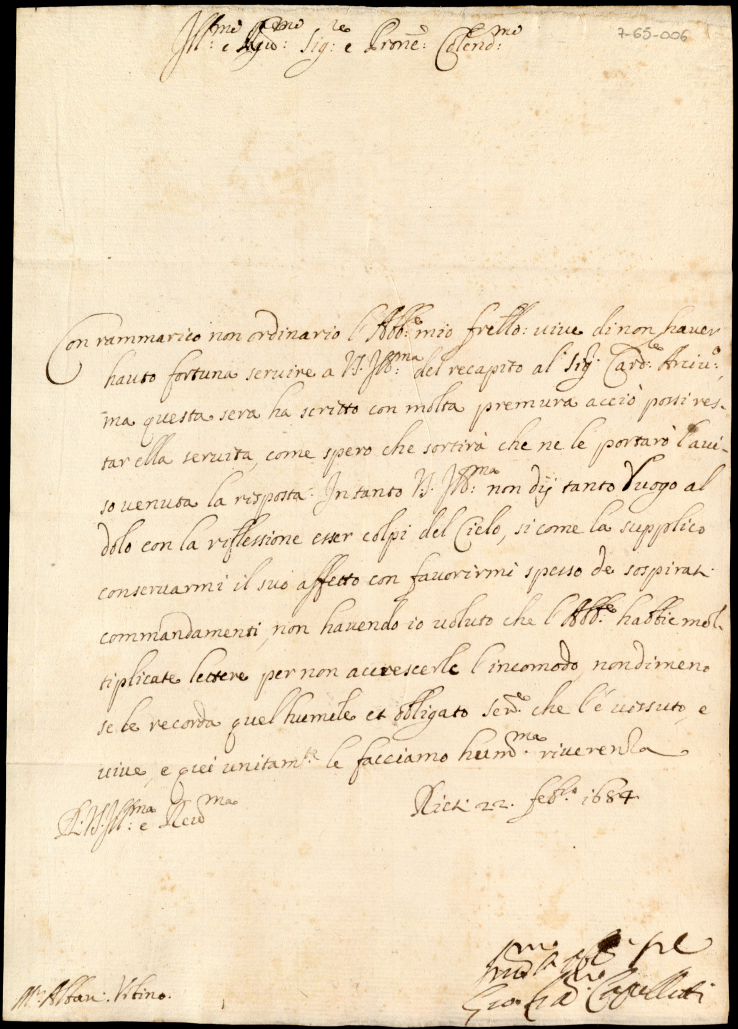 7-65-006
Ill:mo e Rev:mo Sig:re e Prone: Colend:mo
Con rammarico non ordinario l'Abb:e mio frello: vive di non haver
hauto fortuna servire a V.S. Ill:ma del recapito al Sig: Card:le Arciv:o
ma questa sera ha scritto con molta premura acciò possi res-
tar ella servita, come spero che sortirà che ne le portarò l'avi-
so venuta la risposta. In tanto V.S. Ill:ma non dij tanto luogo al
dolo con la riflessione esser colpi del Cielo, si come la supplico
conservarmi il suo affetto con favorirmi spesso de sospirati
commandamenti, non havendo io voluto che l'Abb:e habbie mol-
tiplicate lettere per non accrescerle l'incomodo, nondimeno
se le recorda quel humile et obligato ser:e che l'è vissuto, e
vive, e qui unitam:te le facciamo hum:ma riverenza
Rieti 22. feb:ro 1684
D. V.S. Ill:ma e Rev:ma
Gio: Capelletti
M:r Alban: Urbino.